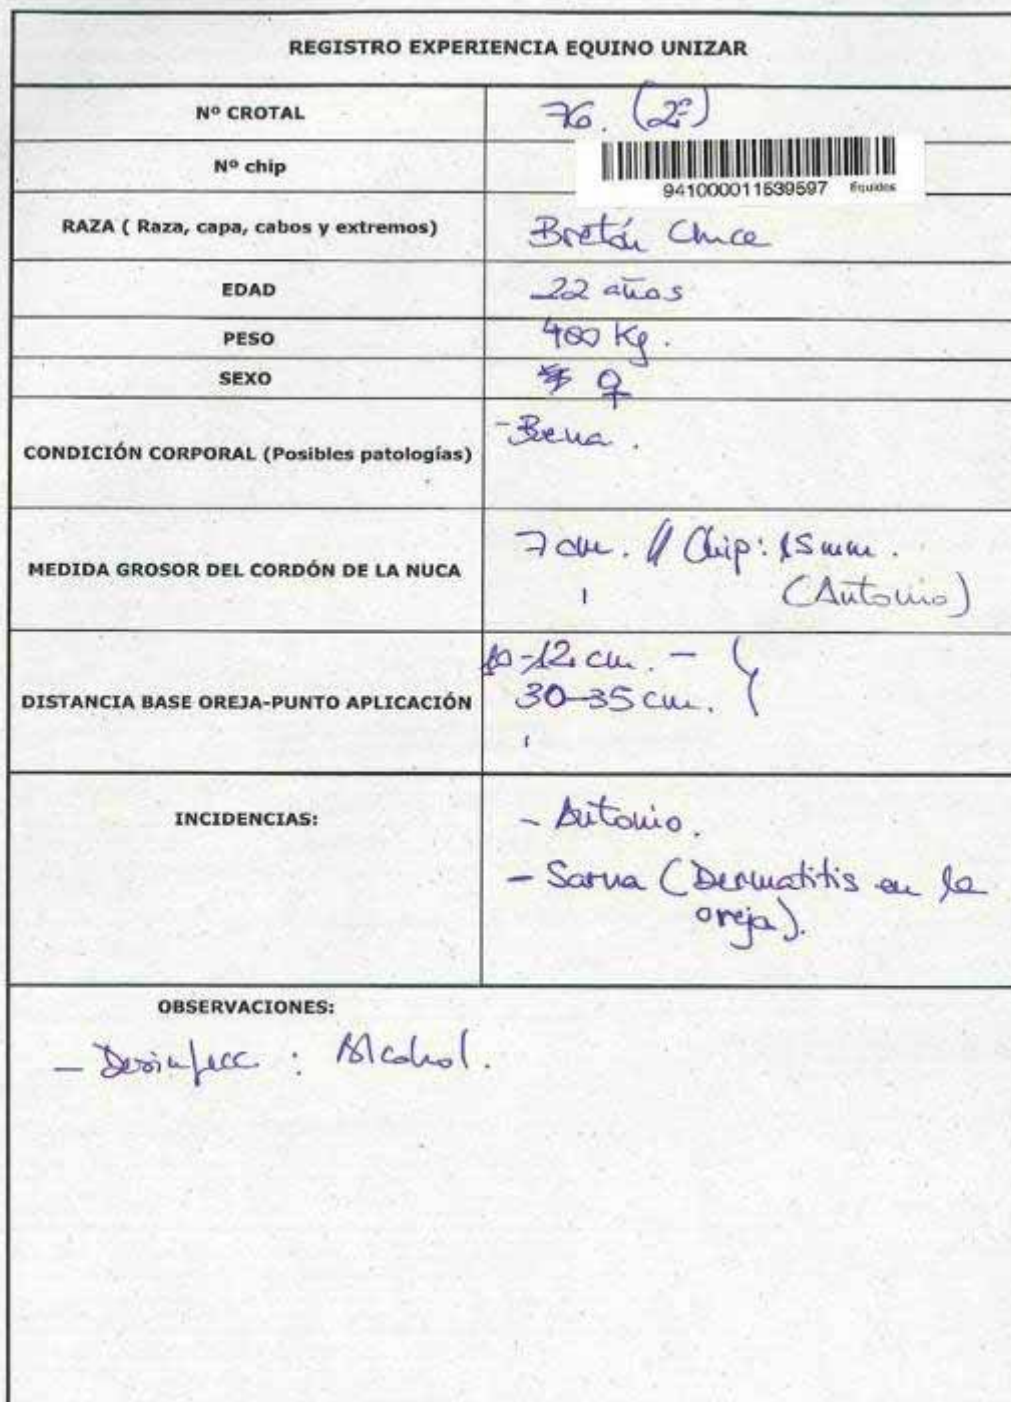 REGISTRO EXPERIENCIA EQUINO UNIZAR
Nº CROTAL 76. (2º)
Nº chip 941000011539597 Équidos
RAZA ( Raza, capa, cabos y extremos) Bretón Cruce
EDAD 22 años
PESO 400 Kg.
SEXO ♀
CONDICIÓN CORPORAL (Posibles patologías) - Buena.
MEDIDA GROSOR DEL CORDÓN DE LA NUCA 7 cm. // Chip: 15 mm.
(Antonio)
DISTANCIA BASE OREJA-PUNTO APLICACIÓN 10-12 cm. -
30-35 cm.
INCIDENCIAS: - Antonio.
- Sarna (Dermatitis en la
oreja).
OBSERVACIONES:
- Desinfecc : Alcohol.